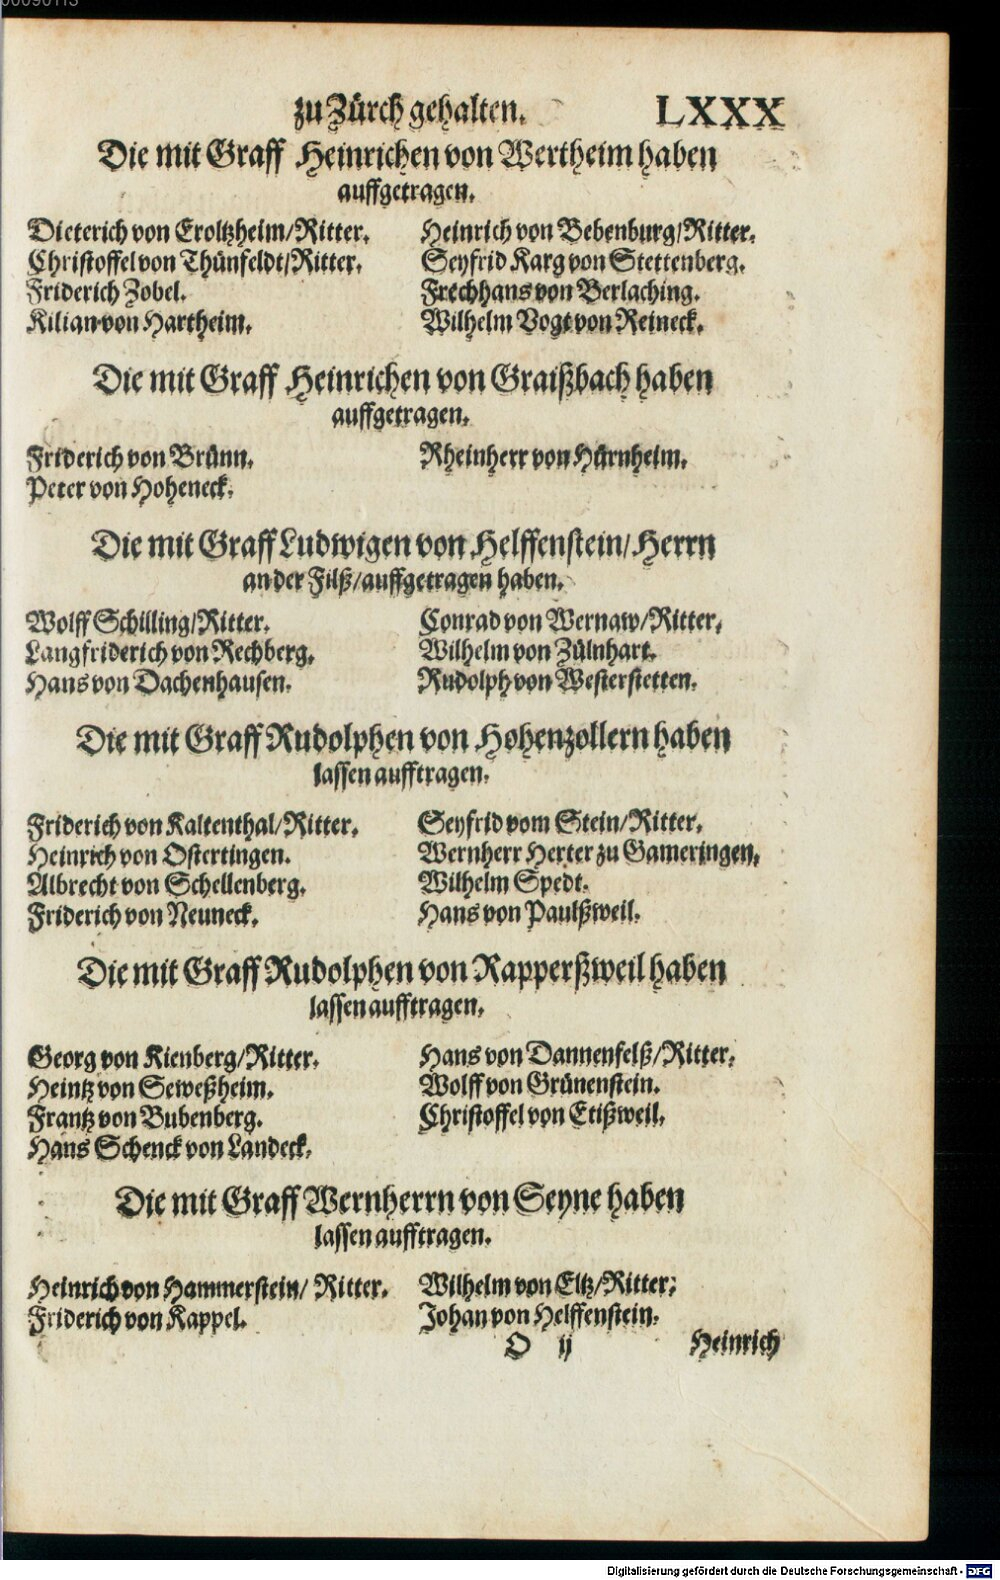 zu Zürch gehalten. LXXX
Die mit Graff Heinrichen von Wertheim haben
auffgetragen.
Dieterich von Eroltzheim/Ritter. Heinrich von Bebenburg/Ritter.
Christoffel von Thünfeldt/Ritter. Seyfrid Karg von Stettenberg.
Friderich Zobel. Frechhans von Berlaching.
Kilian von Hartheim. Wilhelm Vogt von Reineck.
Die mit Graff Heinrichen von Graißbach haben
auffgetragen.
Friderich von Brünn. Rheinherr von Hürnheim.
Peter von Hoheneck.
Die mit Graff Ludwigen von Helffenstein/Herrn
an der Filß/auffgetragen haben.
Wolff Schilling/Ritter. Conrad von Wernaw/Ritter.
Langfriderich von Rechberg. Wilhelm von Zülnhart.
Hans von Dachenhausen. Rudolph von Westerstetten.
Die mit Graff Rudolphen von Hohenzollern haben
lassen aufftragen.
Friderich von Kaltenthal/Ritter. Seyfrid vom Stein/Ritter.
Heinrich von Ostertingen. Wernherr Herter zu Gameringen.
Albrecht von Schellenberg. Wilhelm Spedt.
Friderich von Neuneck. Hans von Paulßweil.
Die mit Graff Rudolphen von Rapperßweil haben
lassen aufftragen.
Georg von Kienberg/Ritter. Hans von Dannenfelß/Ritter.
Heintz von Seweßheim. Wolff von Grünenstein.
Frantz von Bubenberg. Christoffel von Etißweil.
Hans Schenck von Landeck.
Die mit Graff Wernherrn von Seyne haben
lassen aufftragen.
Heinrich von Hammerstein/ Ritter. Wilhelm von Eltz/Ritter;
Friderich von Kappel. Johan von Helffenstein.
O ij Heinrich
Digitalisierung gefördert durch die Deutsche Forschungsgemeinschaft - DFG